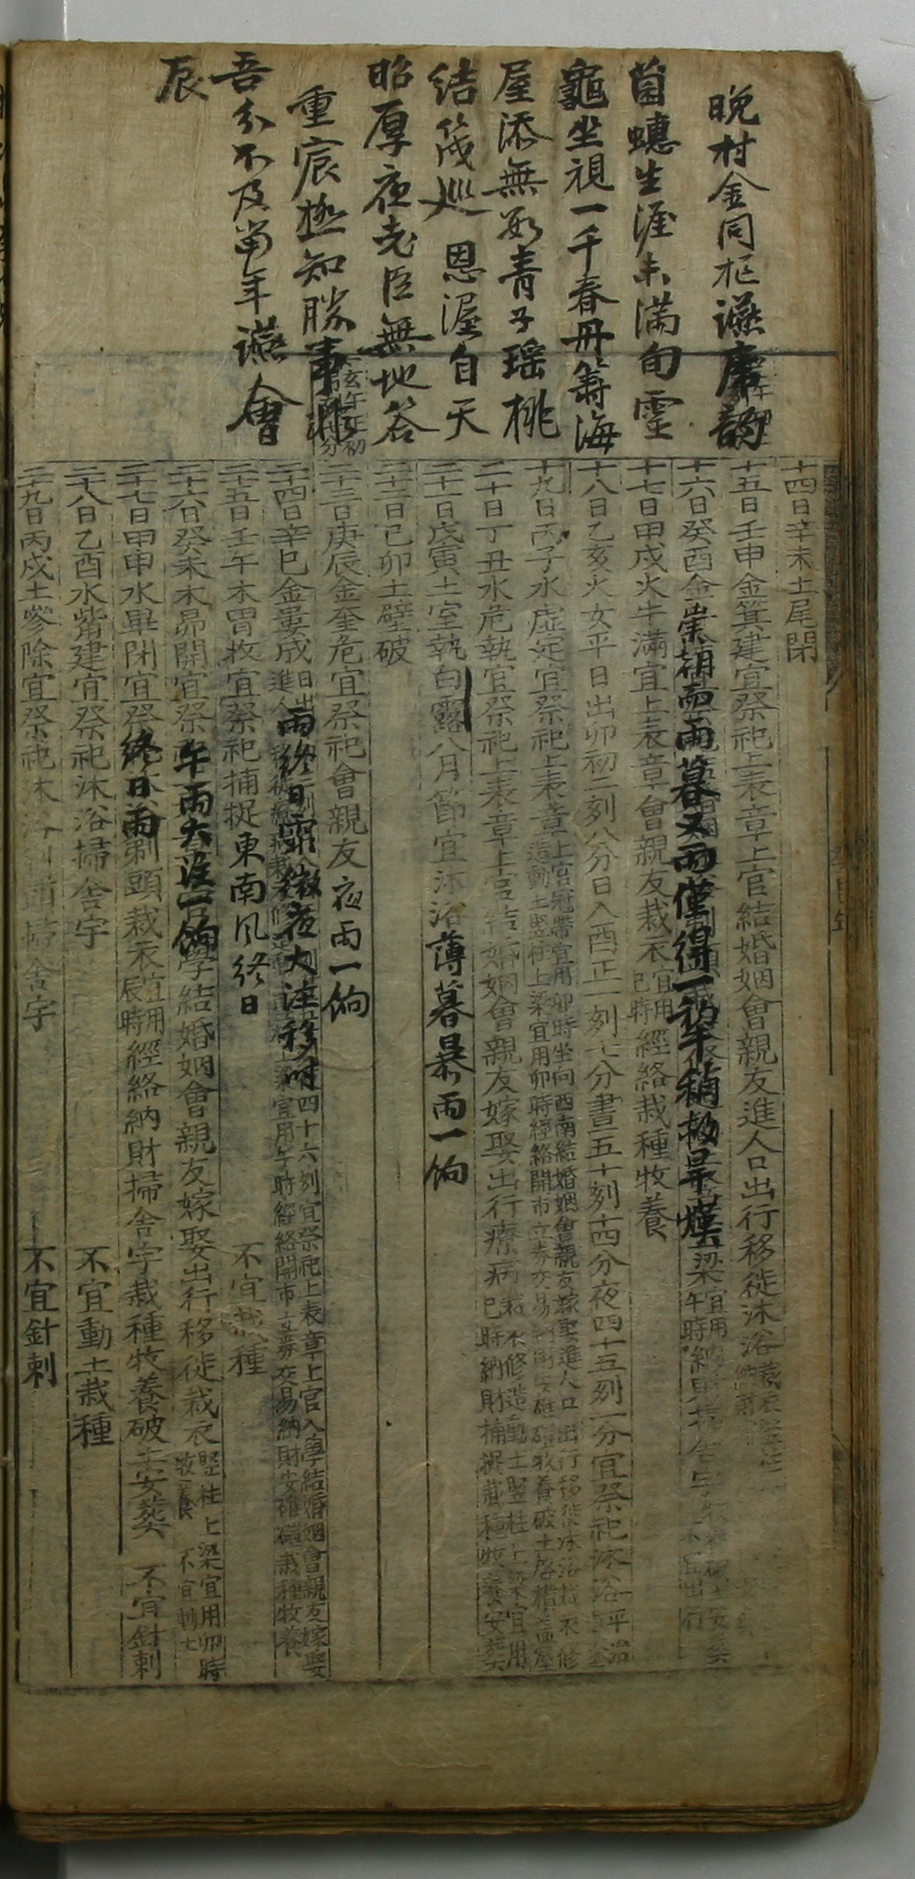 晚村金同枢讌席韵
菌蟪生涯未滿旬靈
龜坐視一千春冊籌海
屋添無數靑子瑤桃
結幾巡 恩渥自天
昭厚夜老臣無地答
重宸極知勝事非
吾分不及當年讌會
辰
十四日辛未土尾閉
十五日壬申金箕建宜祭祀上表章上官結婚姻會親友進人口出行移徙沐浴
十六日癸酉金 崇朝而雨暮又雨僅得一犁半稍救旱熯 梁宜用午時納
十七日甲戌火牛滿宜上表章會親友裁衣宜用巳時經絡栽種牧養
十八日乙亥火女平日出卯初二刻八分日入酉正一刻七分晝五十刻十四分夜四十五刻一分宜祭祀沐浴平治
十九日丙子水虛定宜祭祀上表章上官冠帶宜用卯時坐向西南結婚姻會親友嫁娶進人口出行移徙沐浴裁衣修造動土竪柱上梁宜用卯時經絡開市立券交易
二十日丁丑水危執宜祭祀上表章上官結婚姻會親友嫁娶出行療病裁衣修造動土竪柱上梁宜用巳時納財捕捉栽種牧養安葬
二十一日戊寅土室執白露八月節宜沐浴 薄暮暴雨一餉
二十二日己卯土壁破
二十三日庚辰金奎危宜祭祀會親友 夜雨一餉
二十四日辛巳金婁成日出 雨終日霏微夜大注移時 四十六刻宜祭祀上表章上官入學結婚姻會親友嫁娶進人 梁宜用午時經絡開市立券交易納財安碓磑栽種牧養
二十五日壬午木胃收宜祭祀捕捉 東南風終日 不宜栽種
二十六日癸未木昴開宜祭 午雨大注一餉 學結婚姻會親友嫁娶出行移徙裁衣竪柱上梁宜用卯時牧養 不宜動土
二十七日甲申水畢閉宜祭 終日雨 剃頭裁衣宜用辰時經絡納財掃舍宇栽種牧養破土安葬 不宜針刺
二十八日乙酉水觜建宜祭祀沐浴掃舍宇 不宜動土栽種
二十九日丙戌土參除宜祭祀沐浴 掃舍宇 不宜針刺